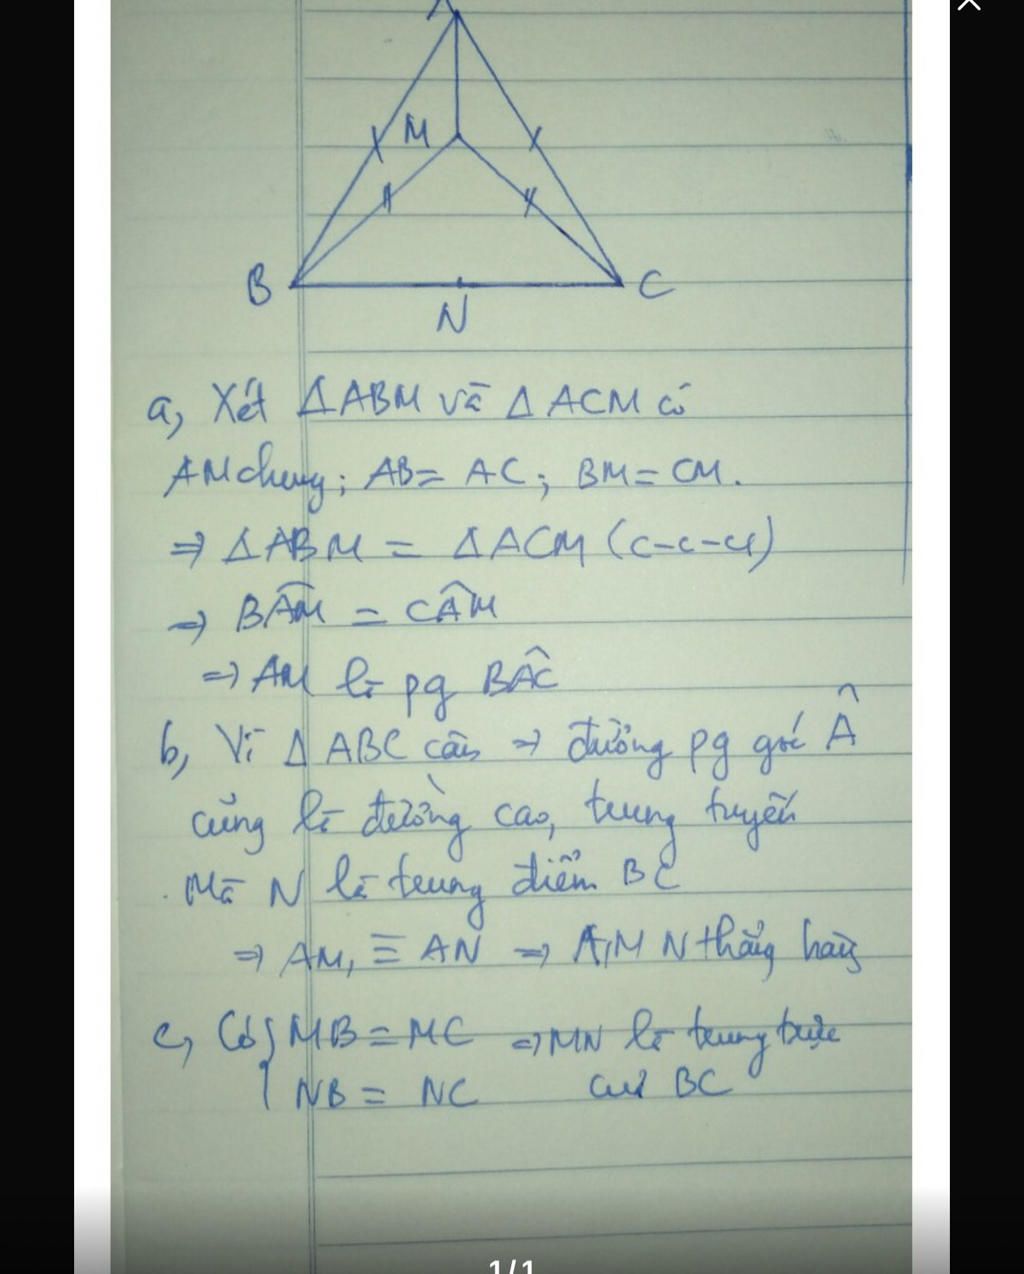 A
M
B
C
N
a, Xét Δ ABM và Δ ACM có
AM chung; AB = AC; BM = CM.
⇒ Δ ABM = Δ ACM (c-c-c)
⇒ BÂM = CÂM
⇒ AM là pg BÂC
b, Vì Δ ABC cân ⇒ đường pg góc Â
cũng là đường cao, trung tuyến
Mà N là trung điểm BC
⇒ AM, ≡ AN ⇒ A, M N thẳng hàng
c, Có { MB = MC ⇒ MN là trung trực
NB = NC của BC
1/1